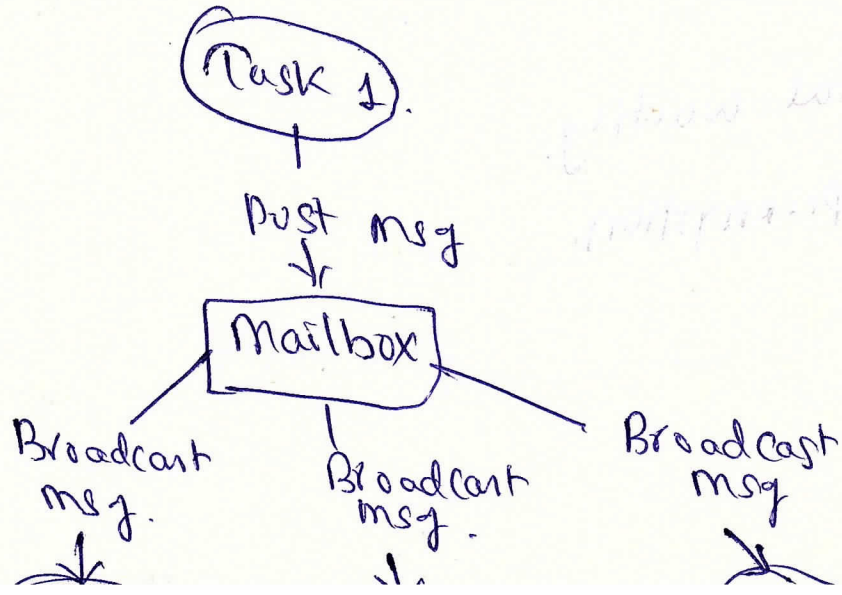 Task 1.
Post msg
Mailbox
Broadcast
msg.
Broadcast
msg.
Broadcast
msg